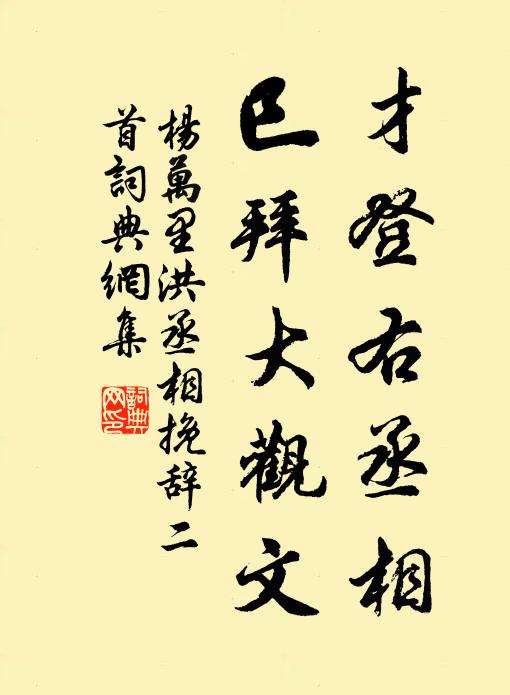 才登右丞相
已拜大觀文
楊萬里洪丞相挽辞二
首詞典網集
詞典
网印